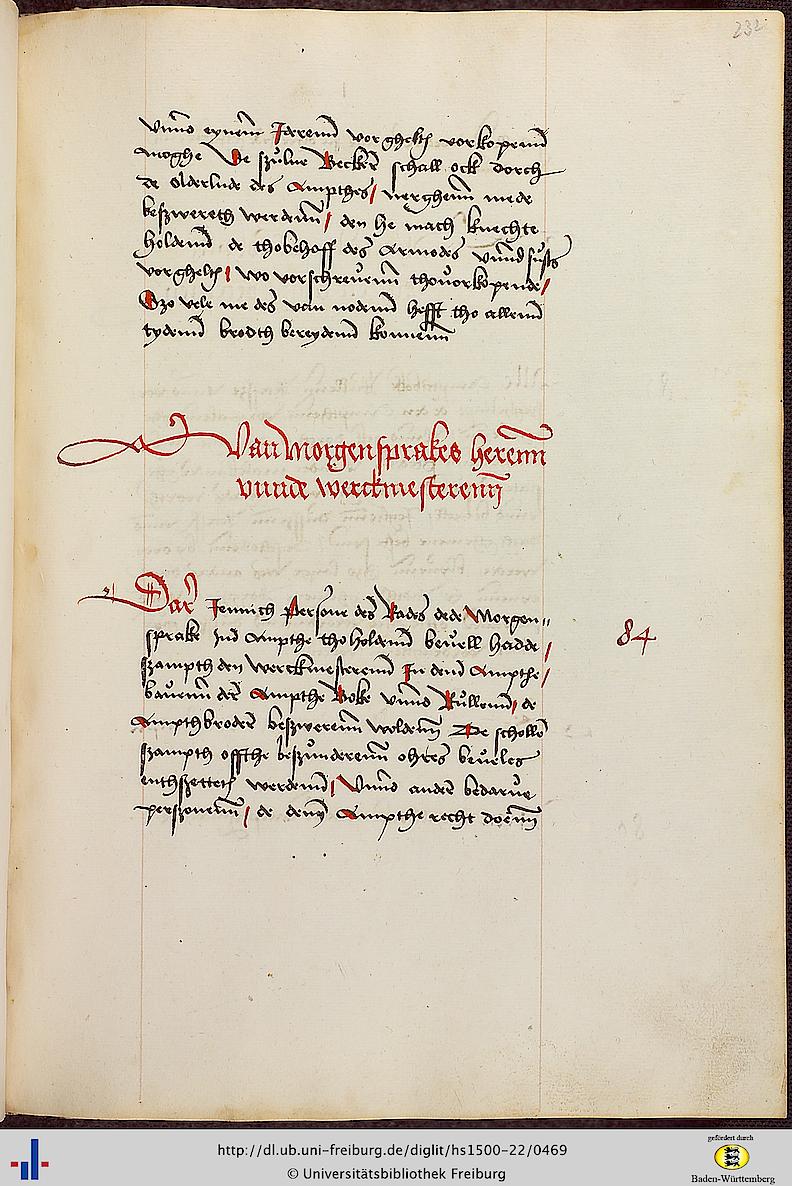 232
vnnd eynem Jarenn vorghelth vorkopenn
moghe De szulue Becker schall ock dorch
de olderlude des Ampthes / nerghenn mede
beszwereth werdenn / den he mach knechte
holdenn de thobehoff des Armodes vnnd susts
vorghelth / wo vorschreuenn thouorkopende /
Szo vele me des van nodenn hefft tho allenn
tydenn brodth bereydenn konnenn
Van Morgensprakes herenn
vnnde werckmesterenn
Dar Jennich Persone des Rades dede Morgen-
sprake Ind Ampthe tho holdenn beuell hadde /
szampth den werckmesterenn In dem Ampthe /
bauenn der Ampthe Boke vnnd Rullenn / de
Ampthbroder beszwerenn woldenn De schollen
szampth offthe beszunderenn ohres beueles
enthszetteth werdenn / Vnnd ander bedarue
perszonenn / de denn Ampthe recht doenn
84
http://dl.ub.uni-freiburg.de/diglit/hs1500-22/0469
© Universitätsbibliothek Freiburg
gefördert durch
Baden-Württemberg